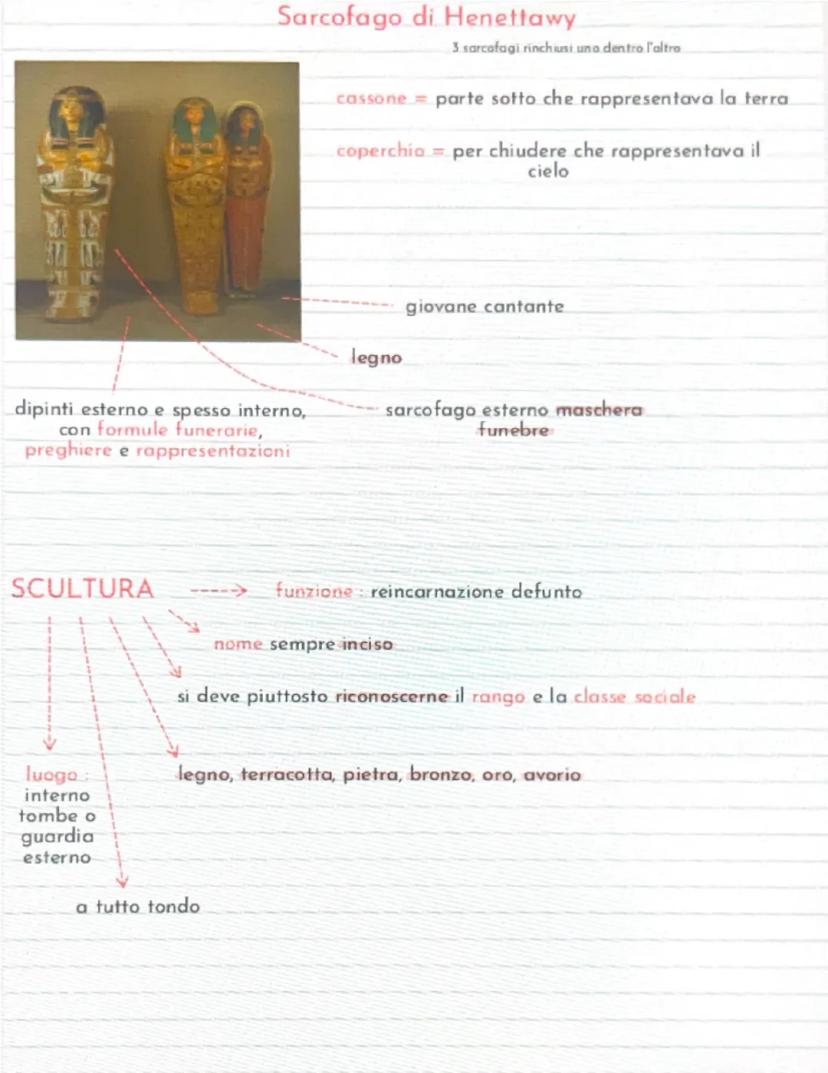 Sarcofago di Henettawy
3 sarcofagi rinchiusi uno dentro l'altro
cassone = parte sotto che rappresentava la terra
coperchio = per chiudere che rappresentava il
cielo
giovane cantante
legno
dipinti esterno e spesso interno,
con formule funerarie,
preghiere e rappresentazioni
sarcofago esterno maschera
funebre
SCULTURA
funzione : reincarnazione defunto
nome sempre inciso
si deve piuttosto riconoscerne il rango e la classe sociale
legno, terracotta, pietra, bronzo, oro, avorio
luogo :
interno
tombe o
guardia
esterno
a tutto tondo